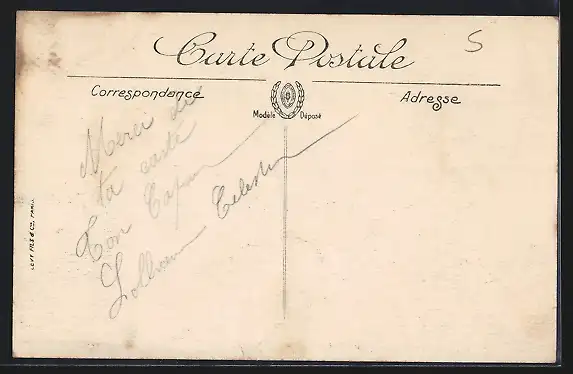 Carte Postale
S
Correspondance
Adresse
Modèle Déposé
Merci de
ta carte
Ton
Célestin
LEVY FILS & Cie, PARIS.